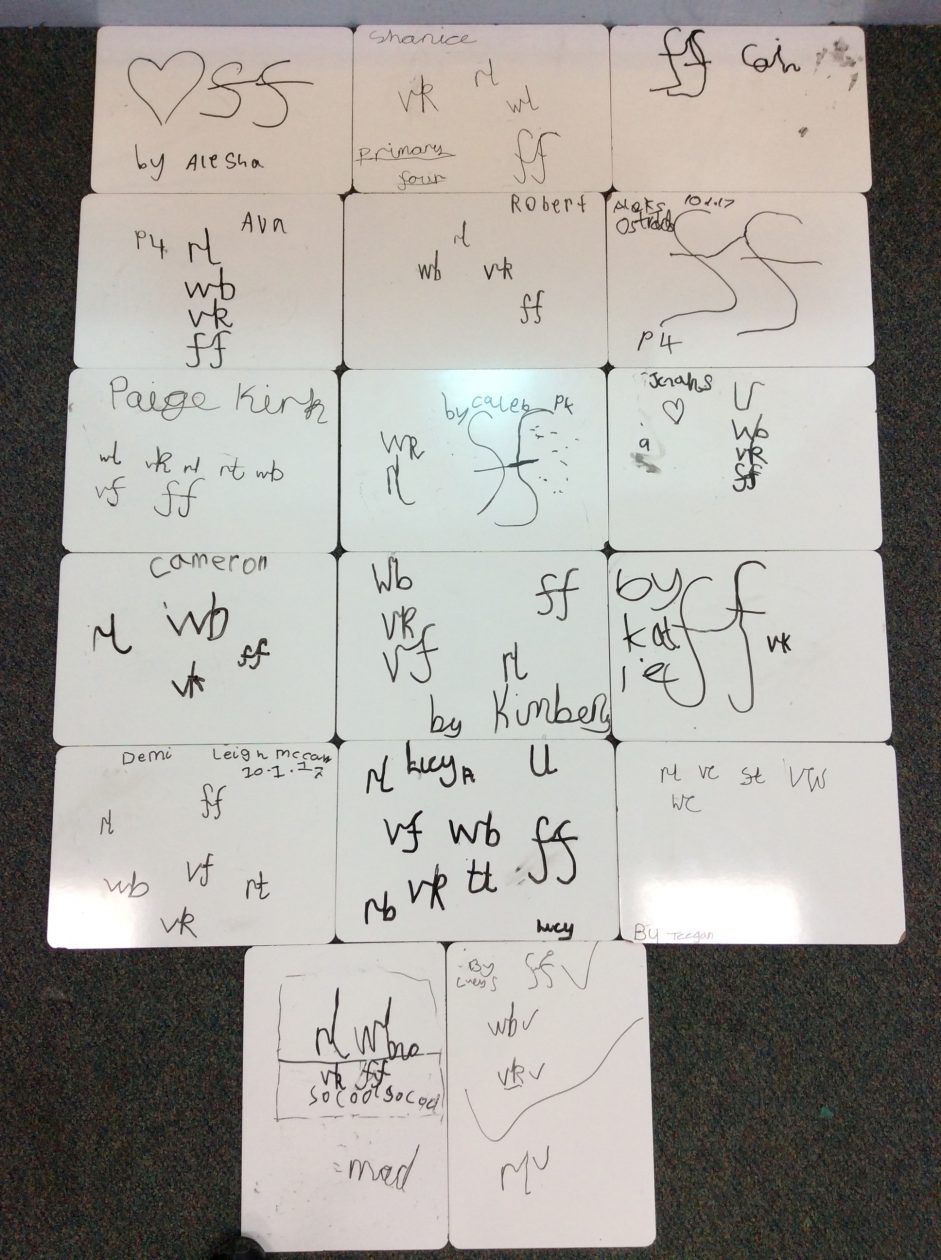 ff
by Alesha
Shanice
rl
vk
wl
primary
four
ff
ff
P4
Ava
rl
wb
vk
ff
Robert
rl
wb vk
ff
Aleks 10.1.17
ff
P4
Paige Kirk
wl vk rl rt wb
vf ff
by caleb P4
wk
rl
ff
wb
vk
ff
Cameron
rl wb
ff
vk
wb
ff
vk
vf
rl
by Kimberly
by
kat
ie
ff
vk
Demi Leigh McCan
10.1.17
ff
rl
wb vf rt
vk
rl Lucy A u
vf wb ff
rb vk tt
Lucy
rt vc st vw
wc
By Teegan
rl wb
vk ff
so cool so cool
=mad
By
Lucy S
ff
wb
vk
rl